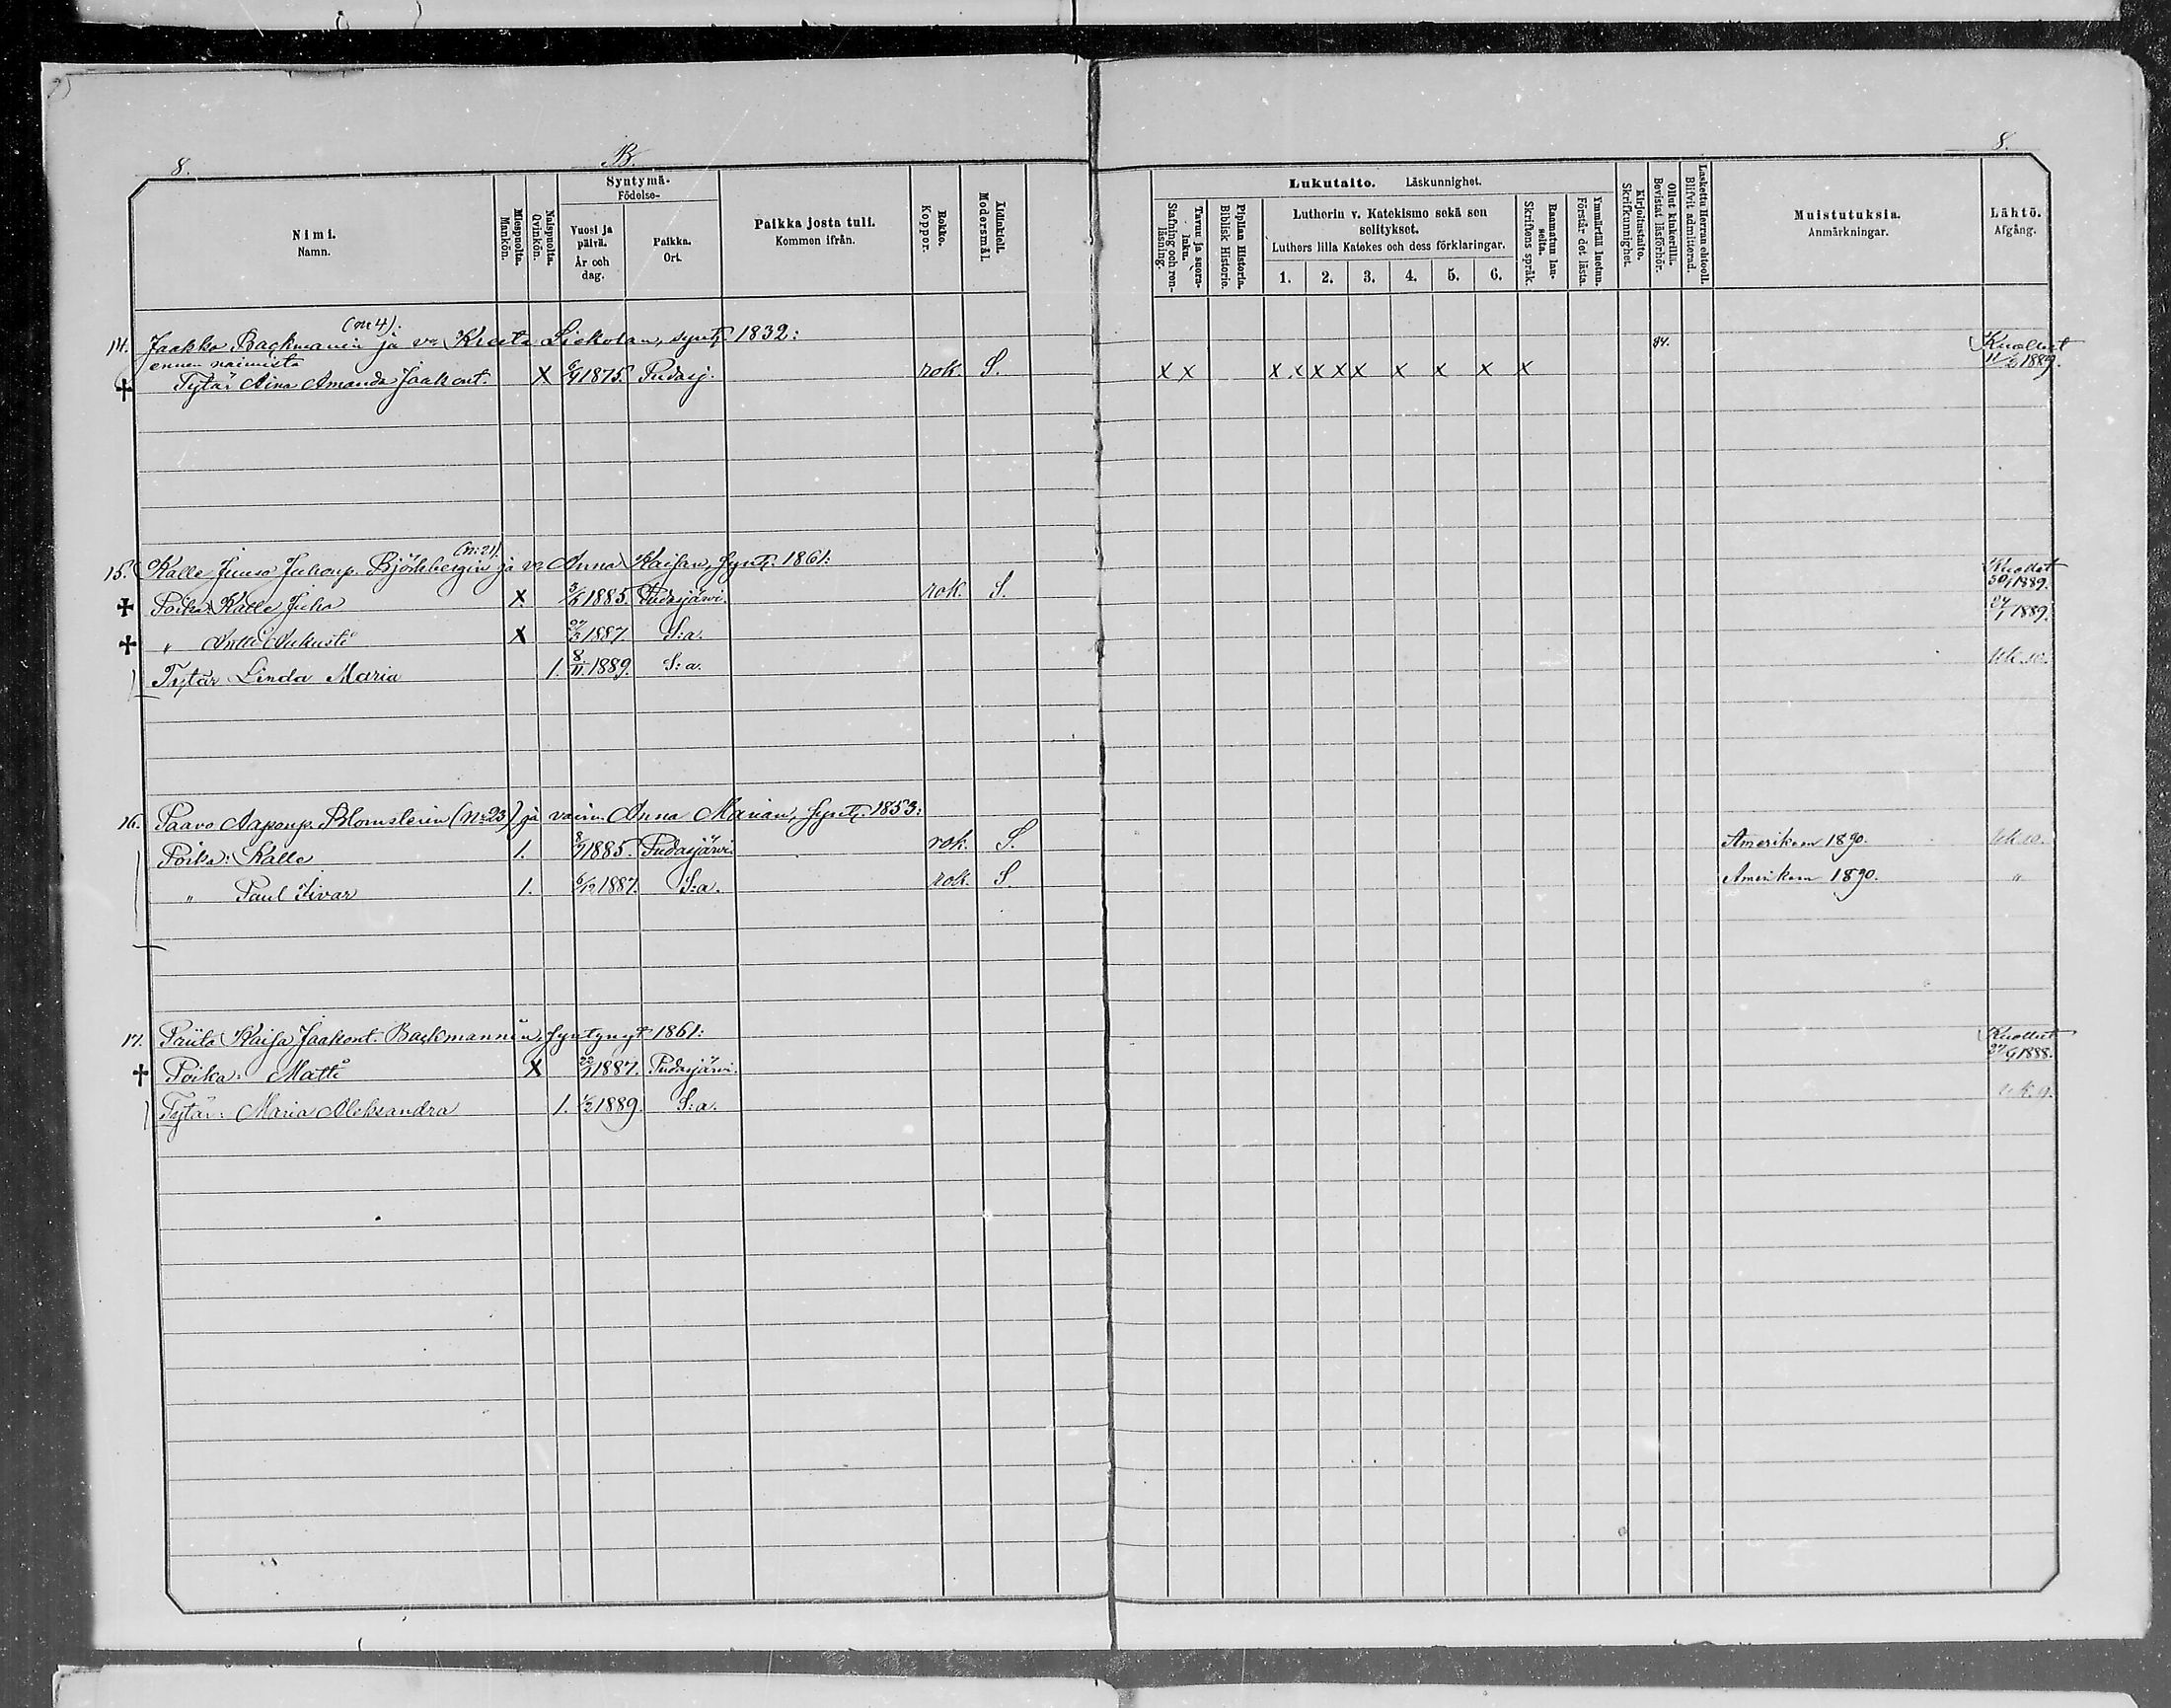 8.
B.
8.
Nimi.
Namn.
Miespuolta.
Mankön.
Naispuolta.
Qvinkön.
Syntymä-
Födelse-
Vuosi ja päivä.
År och dag.
Paikka.
Ort.
Paikka josta tuli.
Kommen ifrån.
Rokko.
Koppor.
Äidinkieli.
Modersmål.
Lukutaito. Läskunnighet.
Tavuu ja suora-luku.
Stafning och ren-läsning.
Piplian Historia.
Biblisk Historie.
Lutherin v. Katekismo sekä sen selitykset.
Luthers lilla Katekes och dess förklaringar.
1. 2. 3. 4. 5. 6.
Raamatun lau-seita.
Skriftens språk.
Ymmärtää luetun.
Förstår det lästa.
Kirjoitustaito.
Skrifkunnighet.
Ollut kinkerillä.
Bevistat läsförhör.
Laskettu Herran ehtooll.
Blifvit admitterad.
Muistutuksia.
Anmärkningar.
Lähtö.
Afgång.
(No 4).
14. Jaakko Backmanin ja vn Kreeta Liekolan, synt. 1832: 84. Kuollut
ennen naimista
Tytär Aina Amanda Jaakont. X 1875. Pudasj. rok. S. X X X X X X X X X X X 1889.
(No 21).
15. Kalle Juuso Juhonp. Björkbergin ja vn Anna Kaisan, synt. 1861: Kuollut
Poika: Kalle Juho X 1885. Pudasjärvi. rok. S. 1889.
" Antti Aukusti X 27/3 1887. S:a. 1889.
Tytär Linda Maria 1. 8/11 1889. S:a.
16. Paavo Aaponp. Blomsterin (No 23) ja vaim. Anna Marian, synt. 1853:
Poika: Kalle 1. 1885. Pudasjärvi. rok. S. Amerikaan 1890.
" Paul Iivar 1. 6/12 1887. S:a. rok. S. Amerikaan 1890. "
17. Piian Kaisa Jaakont. Backmannin, syntynyt 1861: Kuollut
Poika: Matti X 1887. Pudasjärvi. 1888.
Tytär: Maria Aleksandra 1. 1/2 1889. S:a.